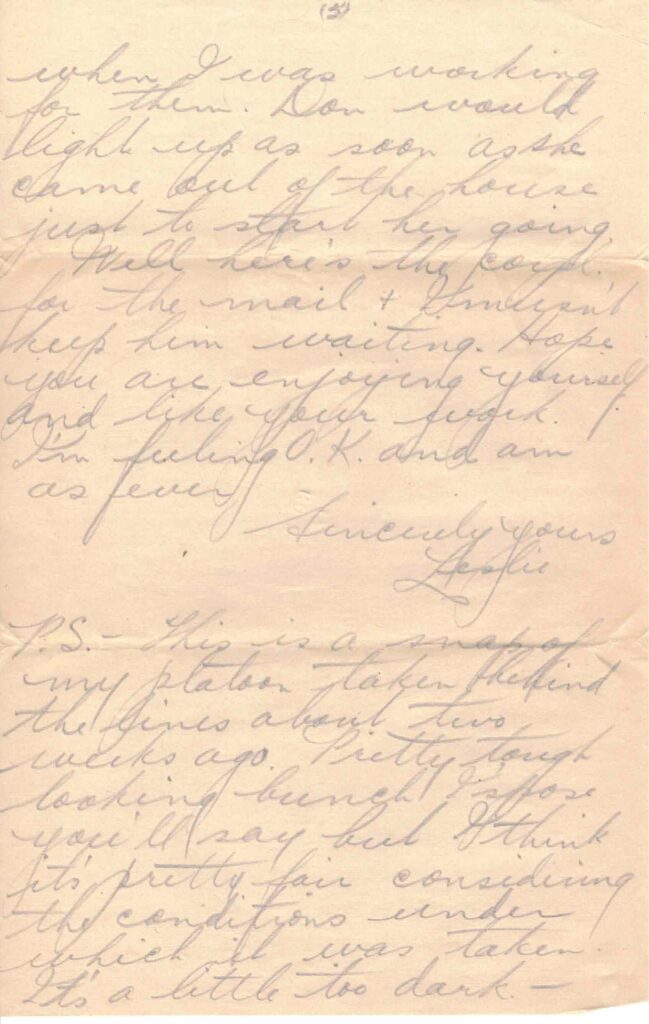 (5)
when I was working
for them. Don would
light up as soon as she
came out of the house
just to start her going.
Well here's the corp'l.
for the mail & I musn't
keep him waiting. Hope
you are enjoying yourself
and like your work.
I'm feeling O.K. and am
as ever
Sincerely yours
Leslie
P.S. - This is a snap of
my platoon taken behind
the lines about two
weeks ago. Pretty tough
looking bunch I s'pose
you'll say but I think
it's pretty fair considering
the conditions under
which it was taken.
It's a little too dark -